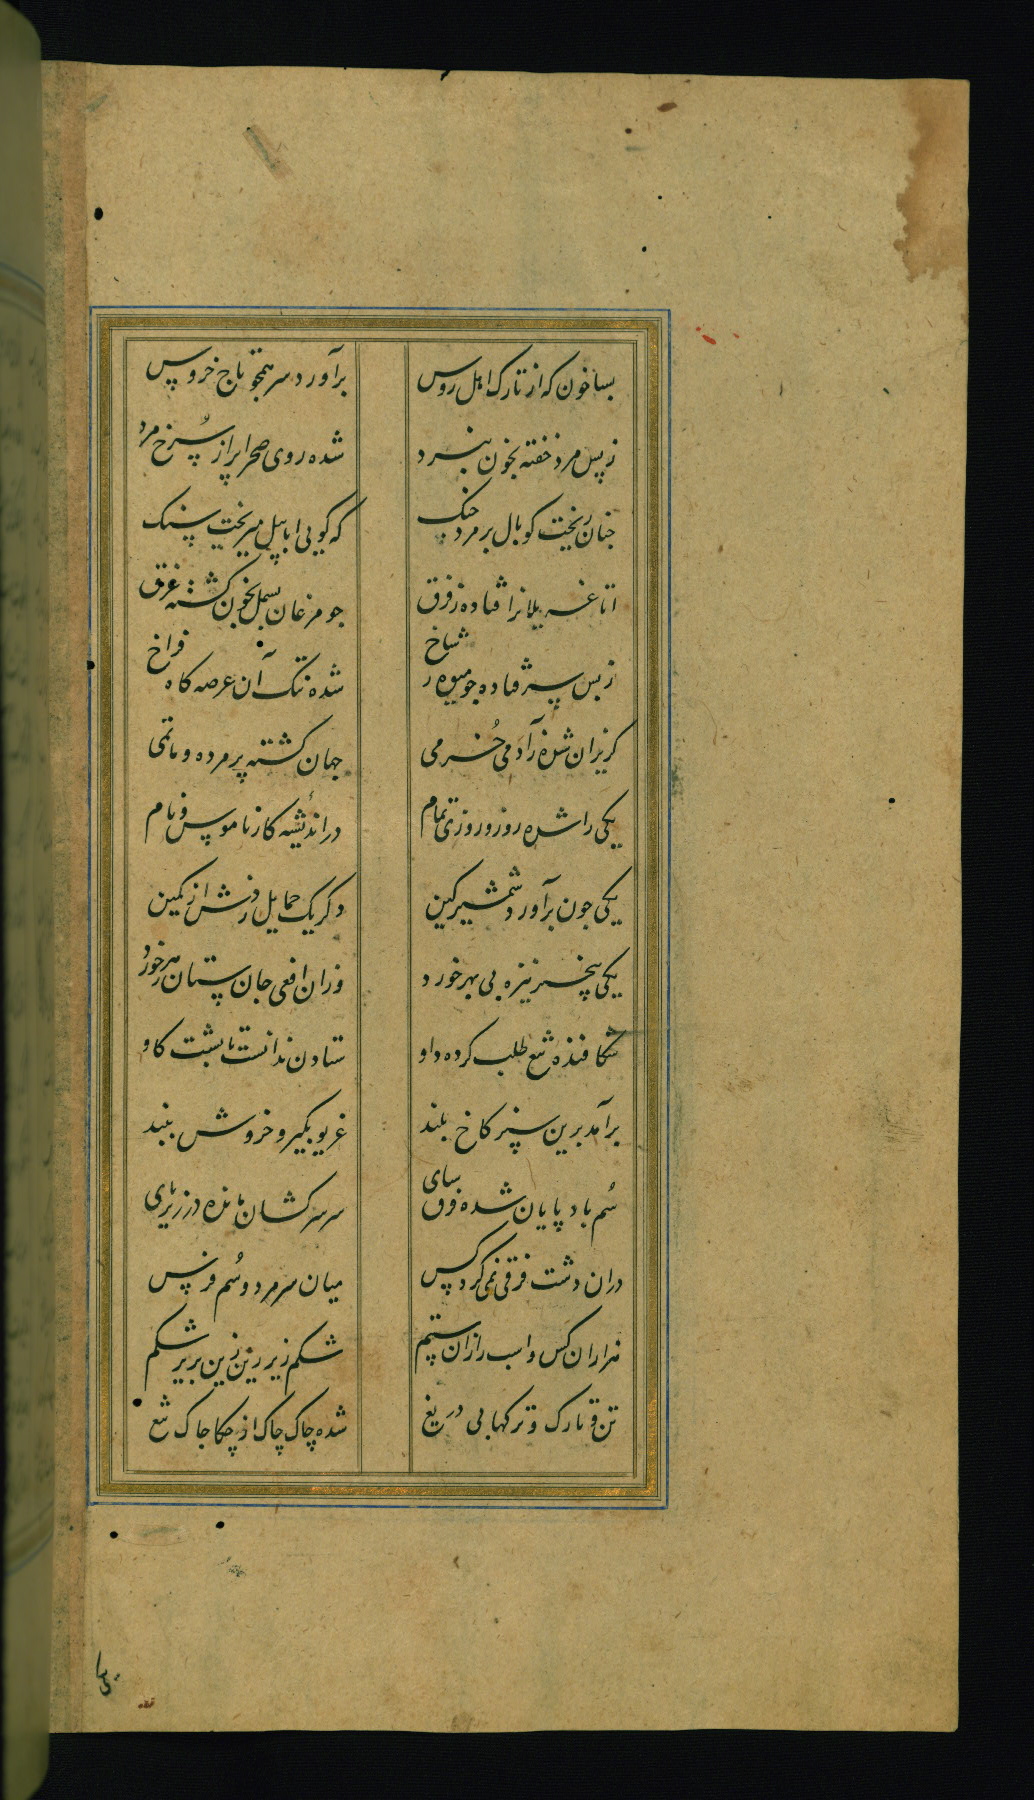 بسا خون که از تارک اهل روس برآورد سر همچو تاج خروس
ز بس مرد خفته بخون نبرد شده روی صحرا پر از سرخ مرد
جنان ریخت کوبال بر مرد جنک که کویی ابابیل میریخت سنک
اتاغه یلانرا فتاده ز فرق جو مرغان بسمل بخون کشته غرق
ز بس سر فتاده جو میوه ز شاخ شده تنک آن عرصه کاه فراخ
کریزان شده زآدمی خرمی جهان کشته پر مرده و ماتمی
یکی را شده روز و روزی تمام در اندیشه کار ناموس و نام
یکی جون برآورد شمشیر کین دکر یک حمایل زدش از کمین
یکی نیزه بی بهر خورد وزان افعی جان ستان زهر خورد
شکافنده تیغ طلب کرده داو ستادن ندانست تا بشت کاو
برآمد برین سبز کاخ بلند غریو بکیر و خروش ببند
سم باد پایان شده فرق سای سر سرکشان مانده در زیر پای
دران دشت فرقی نمی کرد کس میان سر مرد و سم فرس
هزاران کس و اسب را زان ستم شکم زیر زین زین بریر شکم
تن و تارک و ترکها بی دریغ شده چاک چاک از چکاجاک تیغ